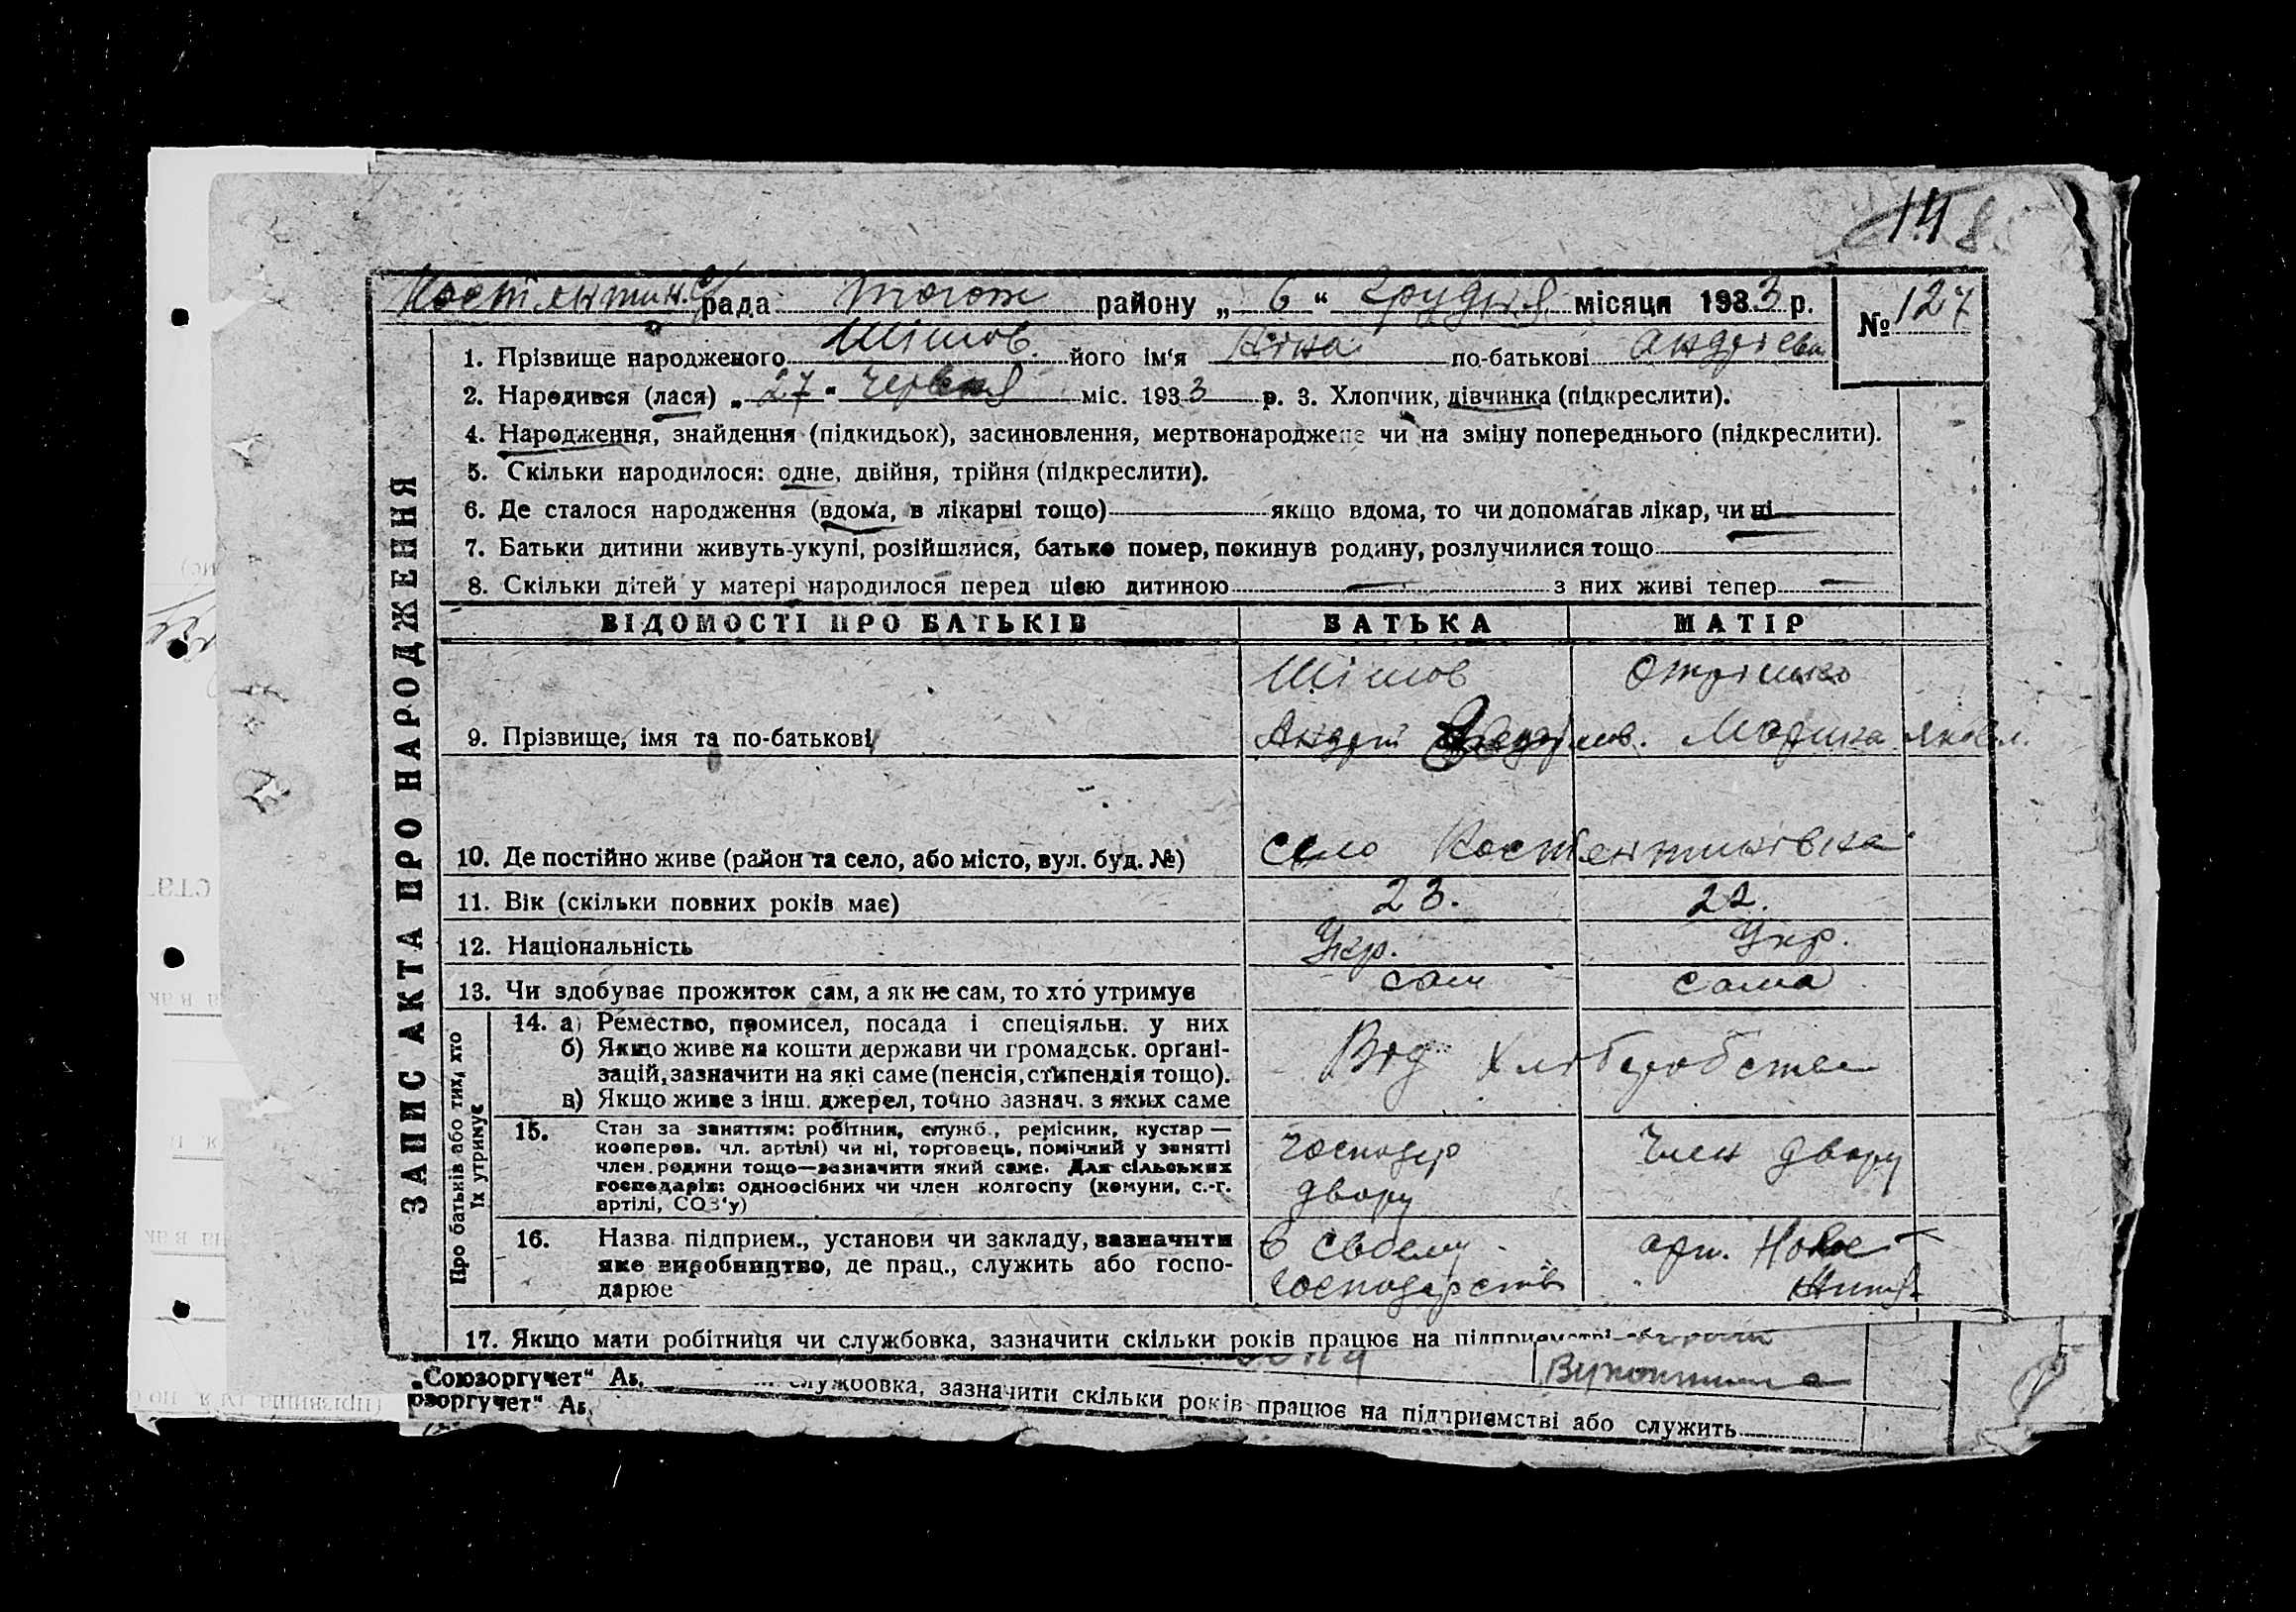 14 8.
Костянтин. С/рада районy „ 6 “ Грудня місяця 1933 р. № 127
1. Прізвище народженого Шішов його ім'я по-батькові Андрієвн
2. Народився (лася) „ 27 “ червня міс. 1933 р. 3. Хлопчик, дівчинка (підкреслити).
4. Народження, знайдення (підкидьок), засиновлення, мертвонароджене чи на зміну попереднього (підкреслити).
5. Скільки народилося: одне, двійня, трійня (підкреслити).
6. Де сталося народження (вдома, в лікарні тощо) якщо вдома, то чи допомагав лікар, чи ні
7. Батьки дитини живуть-укупі, розійшлися, батько помер, покинув родину, розлучилися тощо
8. Скільки дітей у матері народилося перед цією дитиною — з них живі тепер —
ЗАПИС АКТА ПРО НАРОДЖЕННЯ
ВІДОМОСТІ ПРО БАТЬКІВ БАТЬКА МАТІР
Шішов
9. Прізвище, імя та по-батькові Андрій Марина Яковл.
10. Де постійно живе (район та село, або місто, вул. буд. №) село Костянтинівка
11. Вік (скільки повних років має) 23. 22.
12. Національність Укр. Укр.
13. Чи здобуває прожиток сам, а як не сам, то хто утримує сам сама
Про батьків або тих, хто їх утримує
14. а) Ремество, промисел, посада і спеціяльн. у них
б) Якщо живе на кошти держави чи громадськ. орґані-
зацій, зазначити на які саме (пенсія, стипендія тощо).
в) Якщо живе з інш. джерел, точно зазнач. з яких саме
Від Хліборобства
15. Стан за заняттям: робітник, служб., ремісник, кустар —
кооперов. чл. артілі) чи ні, торговець, помічний у занятті
член родини тощо—зазначити який саме. Для сільських
господарів: одноосібних чи член колгоспу (комуни, с.-г.
артілі, СОЗ'у)
господар
двору
Член двору
16. Назва підприєм., установи чи закладу, зазначити
яке виробництво, де прац., служить або госпо-
дарюе
в своему
господарстві
арт. Нове
Життя
17. Якщо мати робітниця чи службовка, зазначити скільки років працює на підприємстві
„Союзоргучет“
службовка, зазначити скільки років працює на підприємстві або служить
озоргучет“